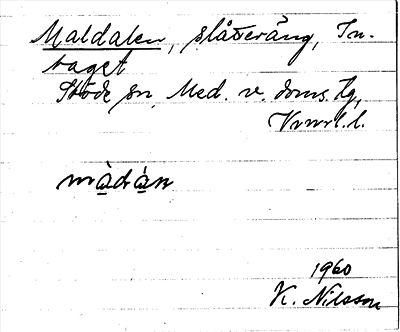 Maldalen, slåtteräng, In-
taget
Stöde sn, Med. v. doms. tg,
Vnrl. l.
màdàn
1960
K. Nilsson